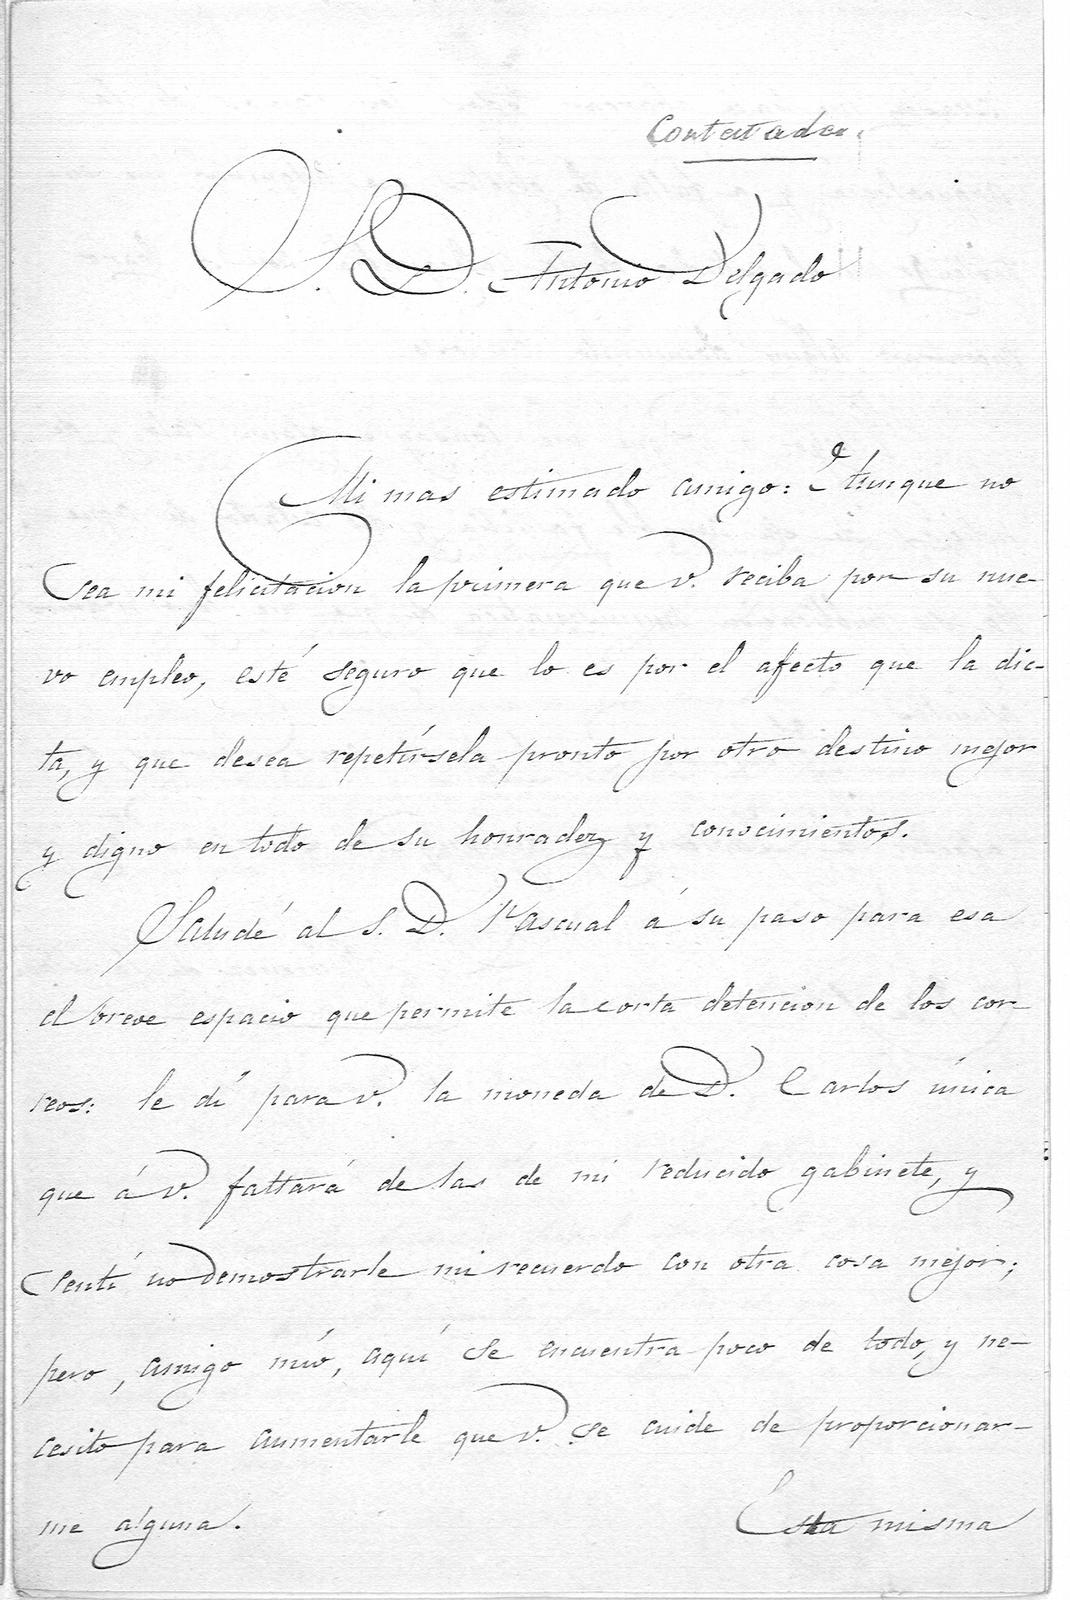 Contestada.
S. D. Antonio Delgado
Mi mas estimado amigo: Aunque no
sea mi felicitacion la primera que v. reciba por su nue-
vo empleo, esté seguro que lo es por el afecto que la dic-
ta, y que desea repetírsela pronto por otro destino mejor
y digno en todo de su honradez y conocimientos.
Saludé al S. D. Pascual á su paso para esa
el breve espacio que permite la corta detencion de los cor-
reos: le dí para v. la moneda de D. Carlos única
que á v. faltará de las de mi reducido gabinete, y
sentí no demostrarle mi recuerdo con otra cosa mejor;
pero, amigo mío, aquí se encuentra poco de todo, y ne-
cesito para aumentarle que v. se cuide de proporcionar-
me alguna.
Esta misma